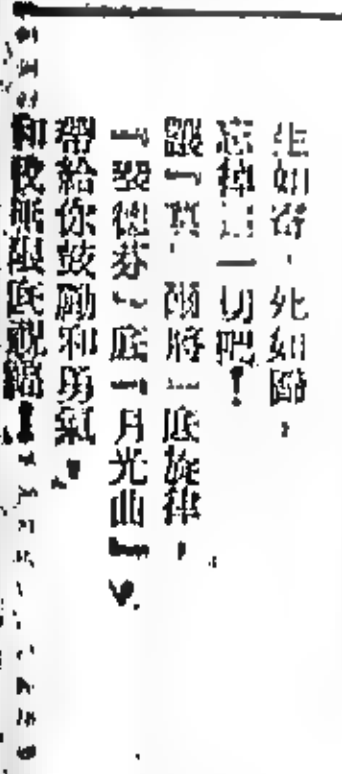 生如寄，死如歸，
忘掉這一切吧！
讓『真·爾時』底旋律，
『斐德芬』底『月光曲』，
帶給你鼓勵和勇氣，
和我無限底祝福！